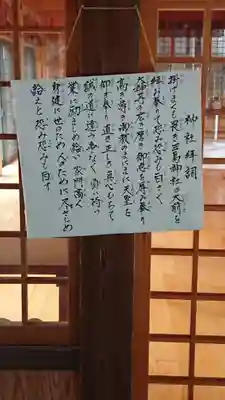 神社拝詞
掛けまくも畏き 五島神社の大前を
拝み奉りて恐み恐みも白さく
大神等の広き厚き御恵を辱み奉り
高き尊き御教のまにまに天皇を
仰ぎ奉り 直き正しき真心もちて
誠の道に違ふことなく 負ひ持つ
業に励ましめ給ひ 家門高く
身健に世のため人のために尽さしめ
給へと恐み恐みも白す